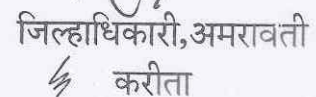 जिल्हाधिकारी,अमरावती
करीता